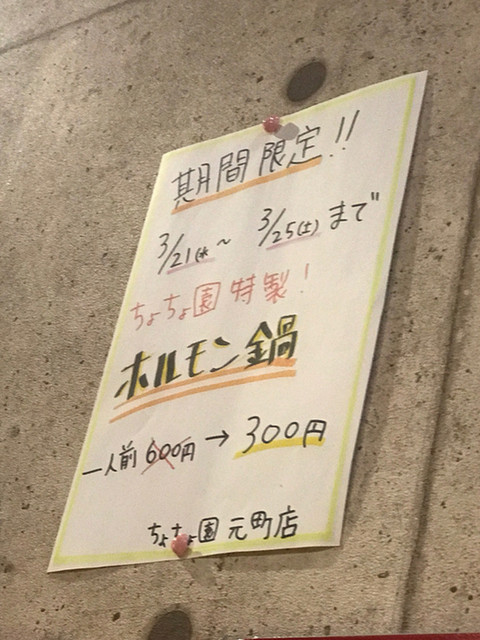 期間限定!!
3/21(水)~ 3/25(土)まで
ちょちょ園 特製!
ホルモン鍋
一人前 600円→300円
ちょちょ園 元町店